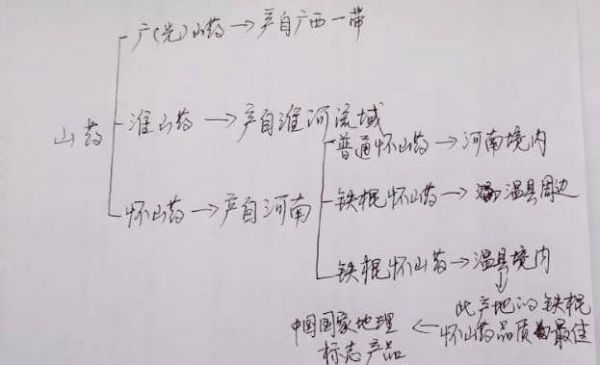 广(光)山药→产自广西一带
山药
淮山药→产自淮河流域
普通怀山药→河南境内
怀山药→产自河南
铁棍怀山药→温县周边
铁棍怀山药→温县境内
此产地的铁棍
怀山药品质最佳
中国国家地理
标志产品